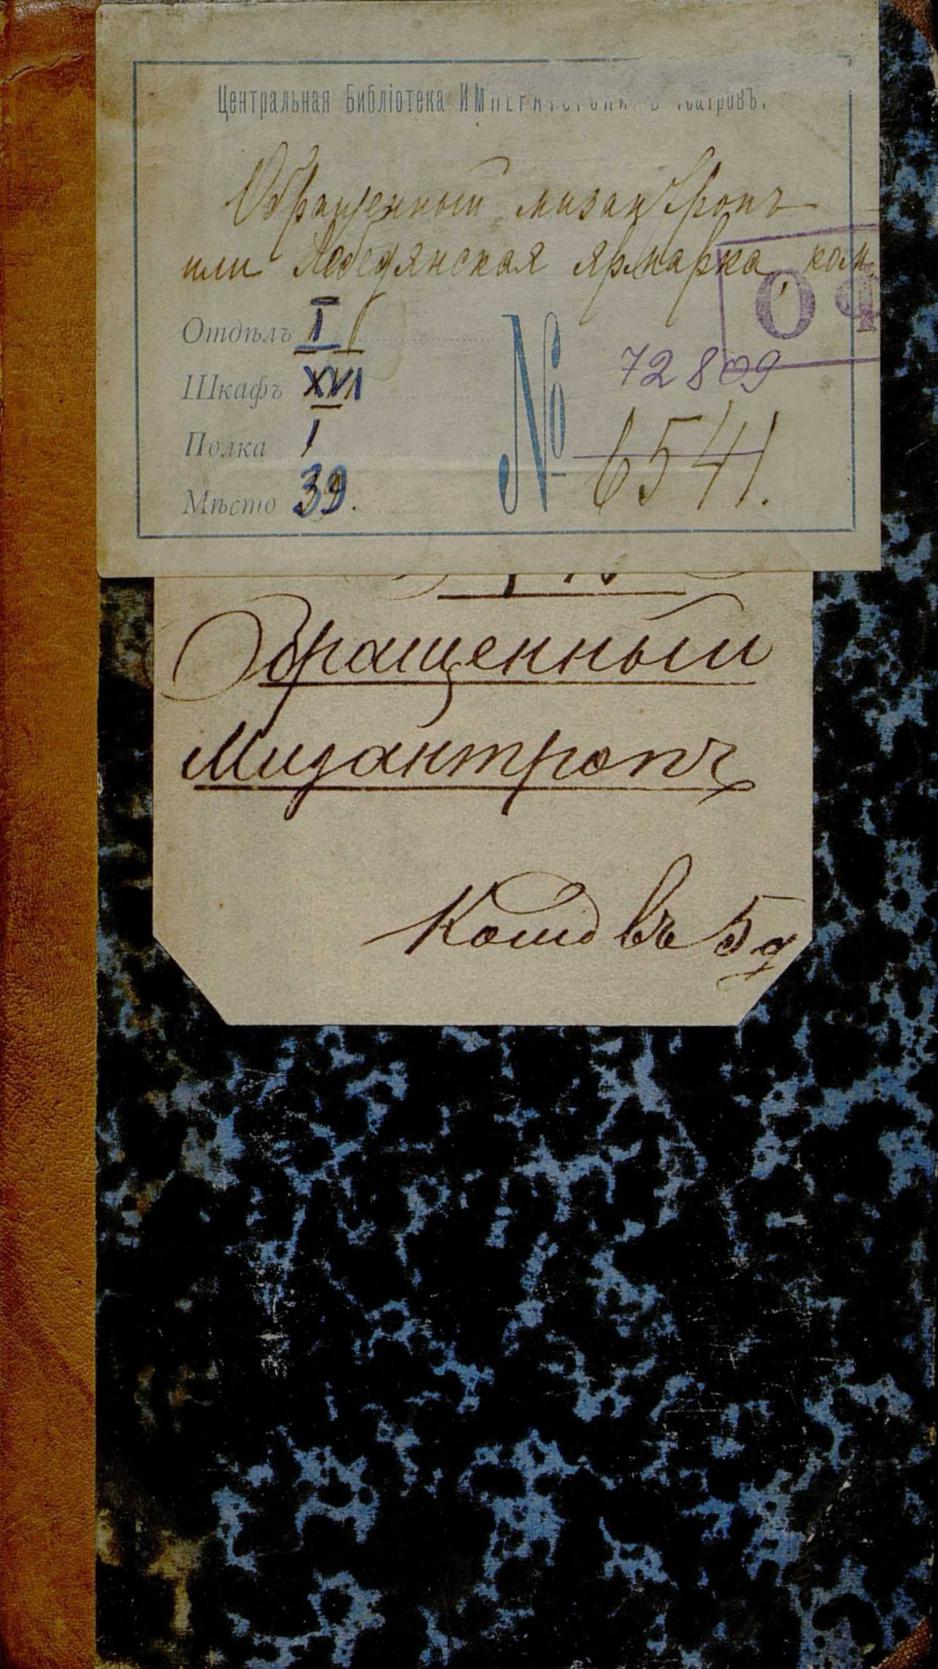 Центральная Библіотека ИМПЕРАТОРСКИХЪ Театровъ.
Обращенный мизантропъ
или Лебедянская ярмарка, ком
ОФ
Отдѣлъ I
Шкафъ XVI
72809
Полка 1
№ 6541.
Мѣсто 39.
Обращенный
Мизантропъ
Комд въ 5 д